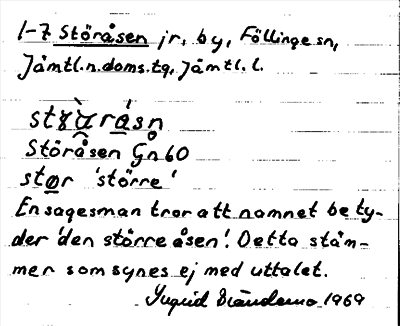 1-7 Störåsen jr, by, Föllinge sn,
Jämtl.n.doms.tg, Jämtl.l.
Störåsen Gn 60
stør 'större'
En sagesman tror att namnet bety-
der 'den större åsen'. Detta stäm-
mer som synes ej med uttalet.
Ingrid 1969